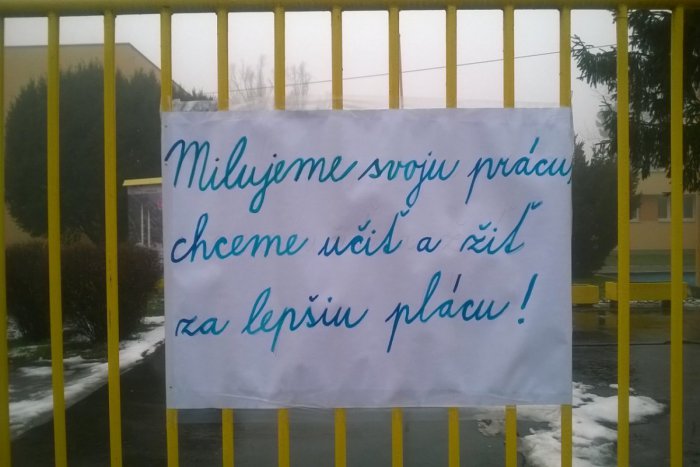 Milujeme svoju prácu,
chceme učiť a žiť
za lepšiu plácu!